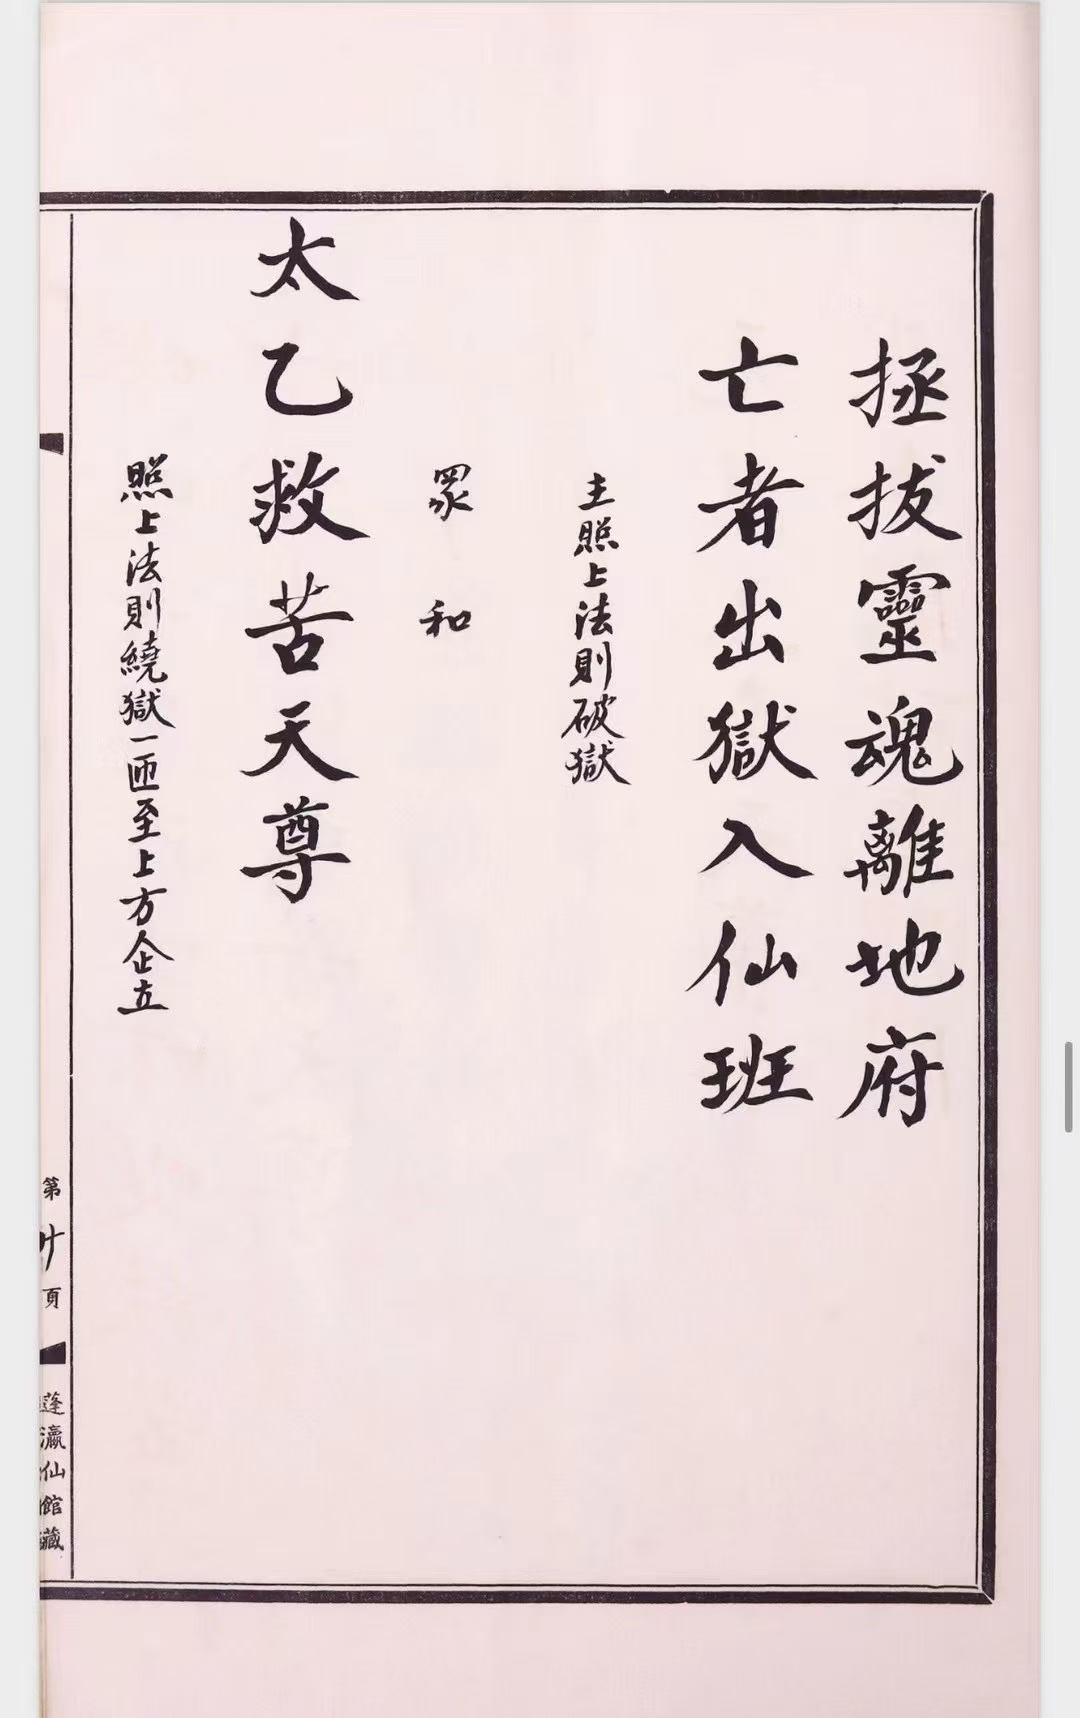 拯拔靈魂離地府
亡者出獄入仙班
主照上法則破獄
眾和
太乙救苦天尊
照上法則繞獄一匝至上方企立
第廿頁
蓬瀛仙館藏